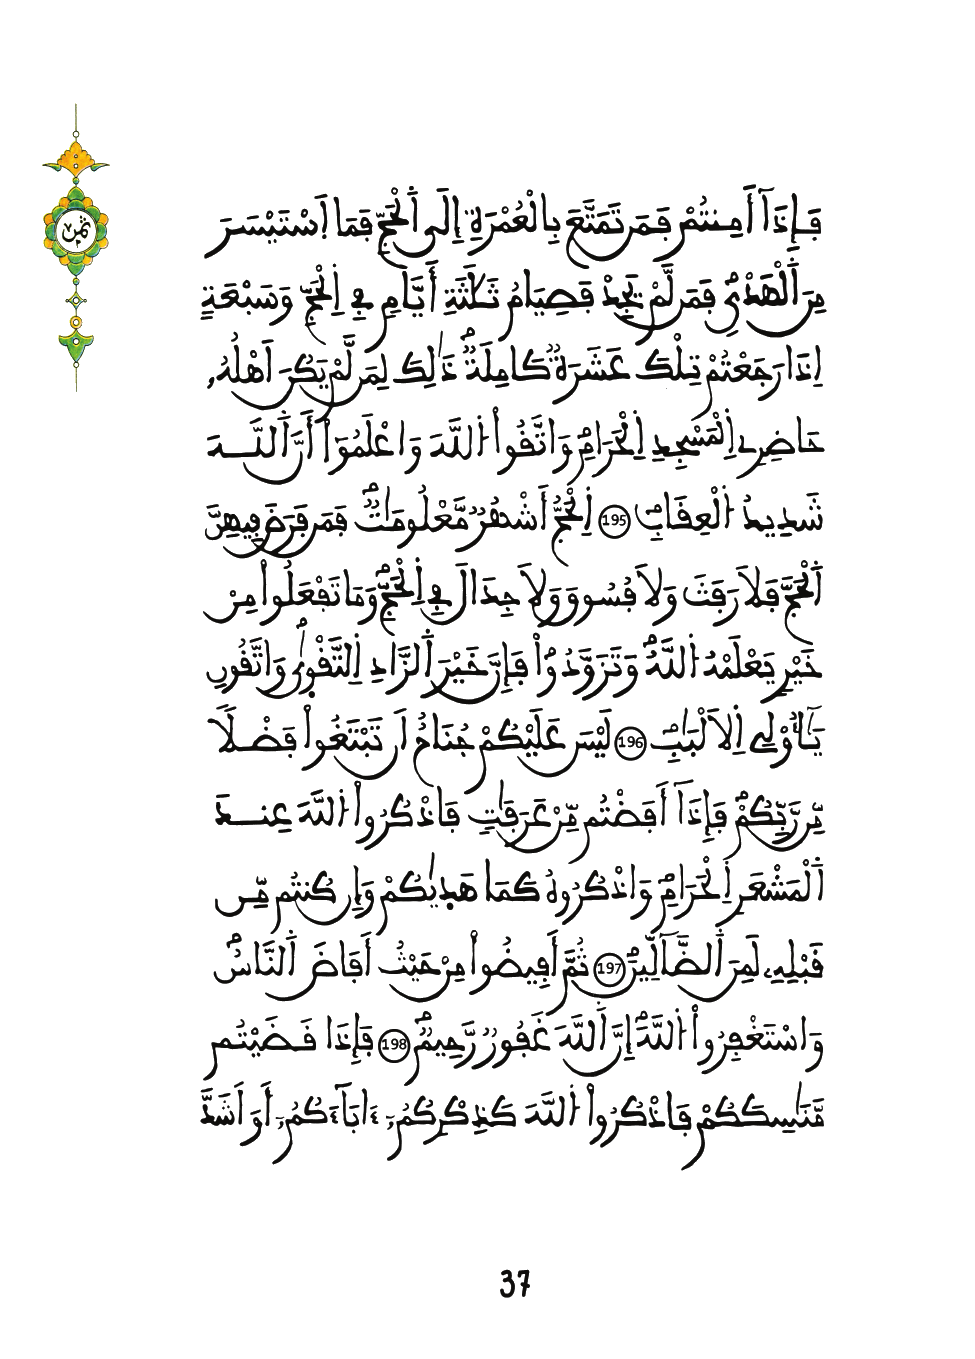 ثمن
فَإِذَآ أَمِنتُمْ فَمَن تَمَتَّعَ بِالْعُمْرَةِ إِلَى اَ۬لْحَجِّ فَمَا اَ۪سْتَيْسَرَ
مِنَ اَ۬لْهَدْيِۖ فَمَن لَّمْ يَجِدْ فَصِيَامُ ثَلَٰثَةِ أَيَّامٖ فِے اِ۬لْحَجِّ وَسَبْعَةٍ
اِذَا رَجَعْتُمْ تِلْكَ عَشَرَةٞ كَامِلَةٞۖ ذَٰلِكَ لِمَن لَّمْ يَكُنَ اَهْلُهُۥ
حَاضِرِے اِ۬لْمَسْجِدِ اِ۬لْحَرَامِۖ وَاتَّقُواْ اُ۬للَّهَ وَاعْلَمُوٓاْ أَنَّ اَ۬للَّهَ
شَدِيدُ اُ۬لْعِقَابِۖ 195 اِ۬لْحَجُّ أَشْهُرٞ مَّعْلُومَٰتٞۖ فَمَن فَرَضَ فِيهِنَّ
اَ۬لْحَجَّ فَلَا رَفَثَ وَلَا فُسُوقَ وَلَا جِدَالَ فِے اِ۬لْحَجِّۖ وَمَا تَفْعَلُواْ مِنْ
خَيْرٖ يَعْلَمْهُ اُ۬للَّهُۖ وَتَزَوَّدُواْ فَإِنَّ خَيْرَ اَ۬لزَّادِ اِ۬لتَّقْو۪ىٰۖ وَاتَّقُونِ
يَٰٓأُوْلِے اِ۬لَالْبَٰبِۖ 196 لَيْسَ عَلَيْكُمْ جُنَاحٌ اَن تَبْتَغُواْ فَضْلاٗ
مِّن رَّبِّكُمْۖ فَإِذَآ أَفَضْتُم مِّنْ عَرَفَٰتٖ فَاذْكُرُواْ اُ۬للَّهَ عِندَ
اَ۬لْمَشْعَرِ اِ۬لْحَرَامِۖ وَاذْكُرُوهُ كَمَا هَد۪يٰكُمْ وَإِن كُنتُم مِّن
قَبْلِهِۦ لَمِنَ اَ۬لضَّآلِّينَۖ 197 ثُمَّ أَفِيضُواْ مِنْ حَيْثُ أَفَاضَ اَ۬لنَّاسُۖ
وَاسْتَغْفِرُواْ اُ۬للَّهَۖ إِنَّ اَ۬للَّهَ غَفُورٞ رَّحِيمٞۖ 198 فَإِذَا قَضَيْتُم
مَّنَٰسِكَكُمْ فَاذْكُرُواْ اُ۬للَّهَ كَذِكْرِكُمُۥٓ ءَابَآءَكُمُۥٓ أَوَ اَشَدَّ
37